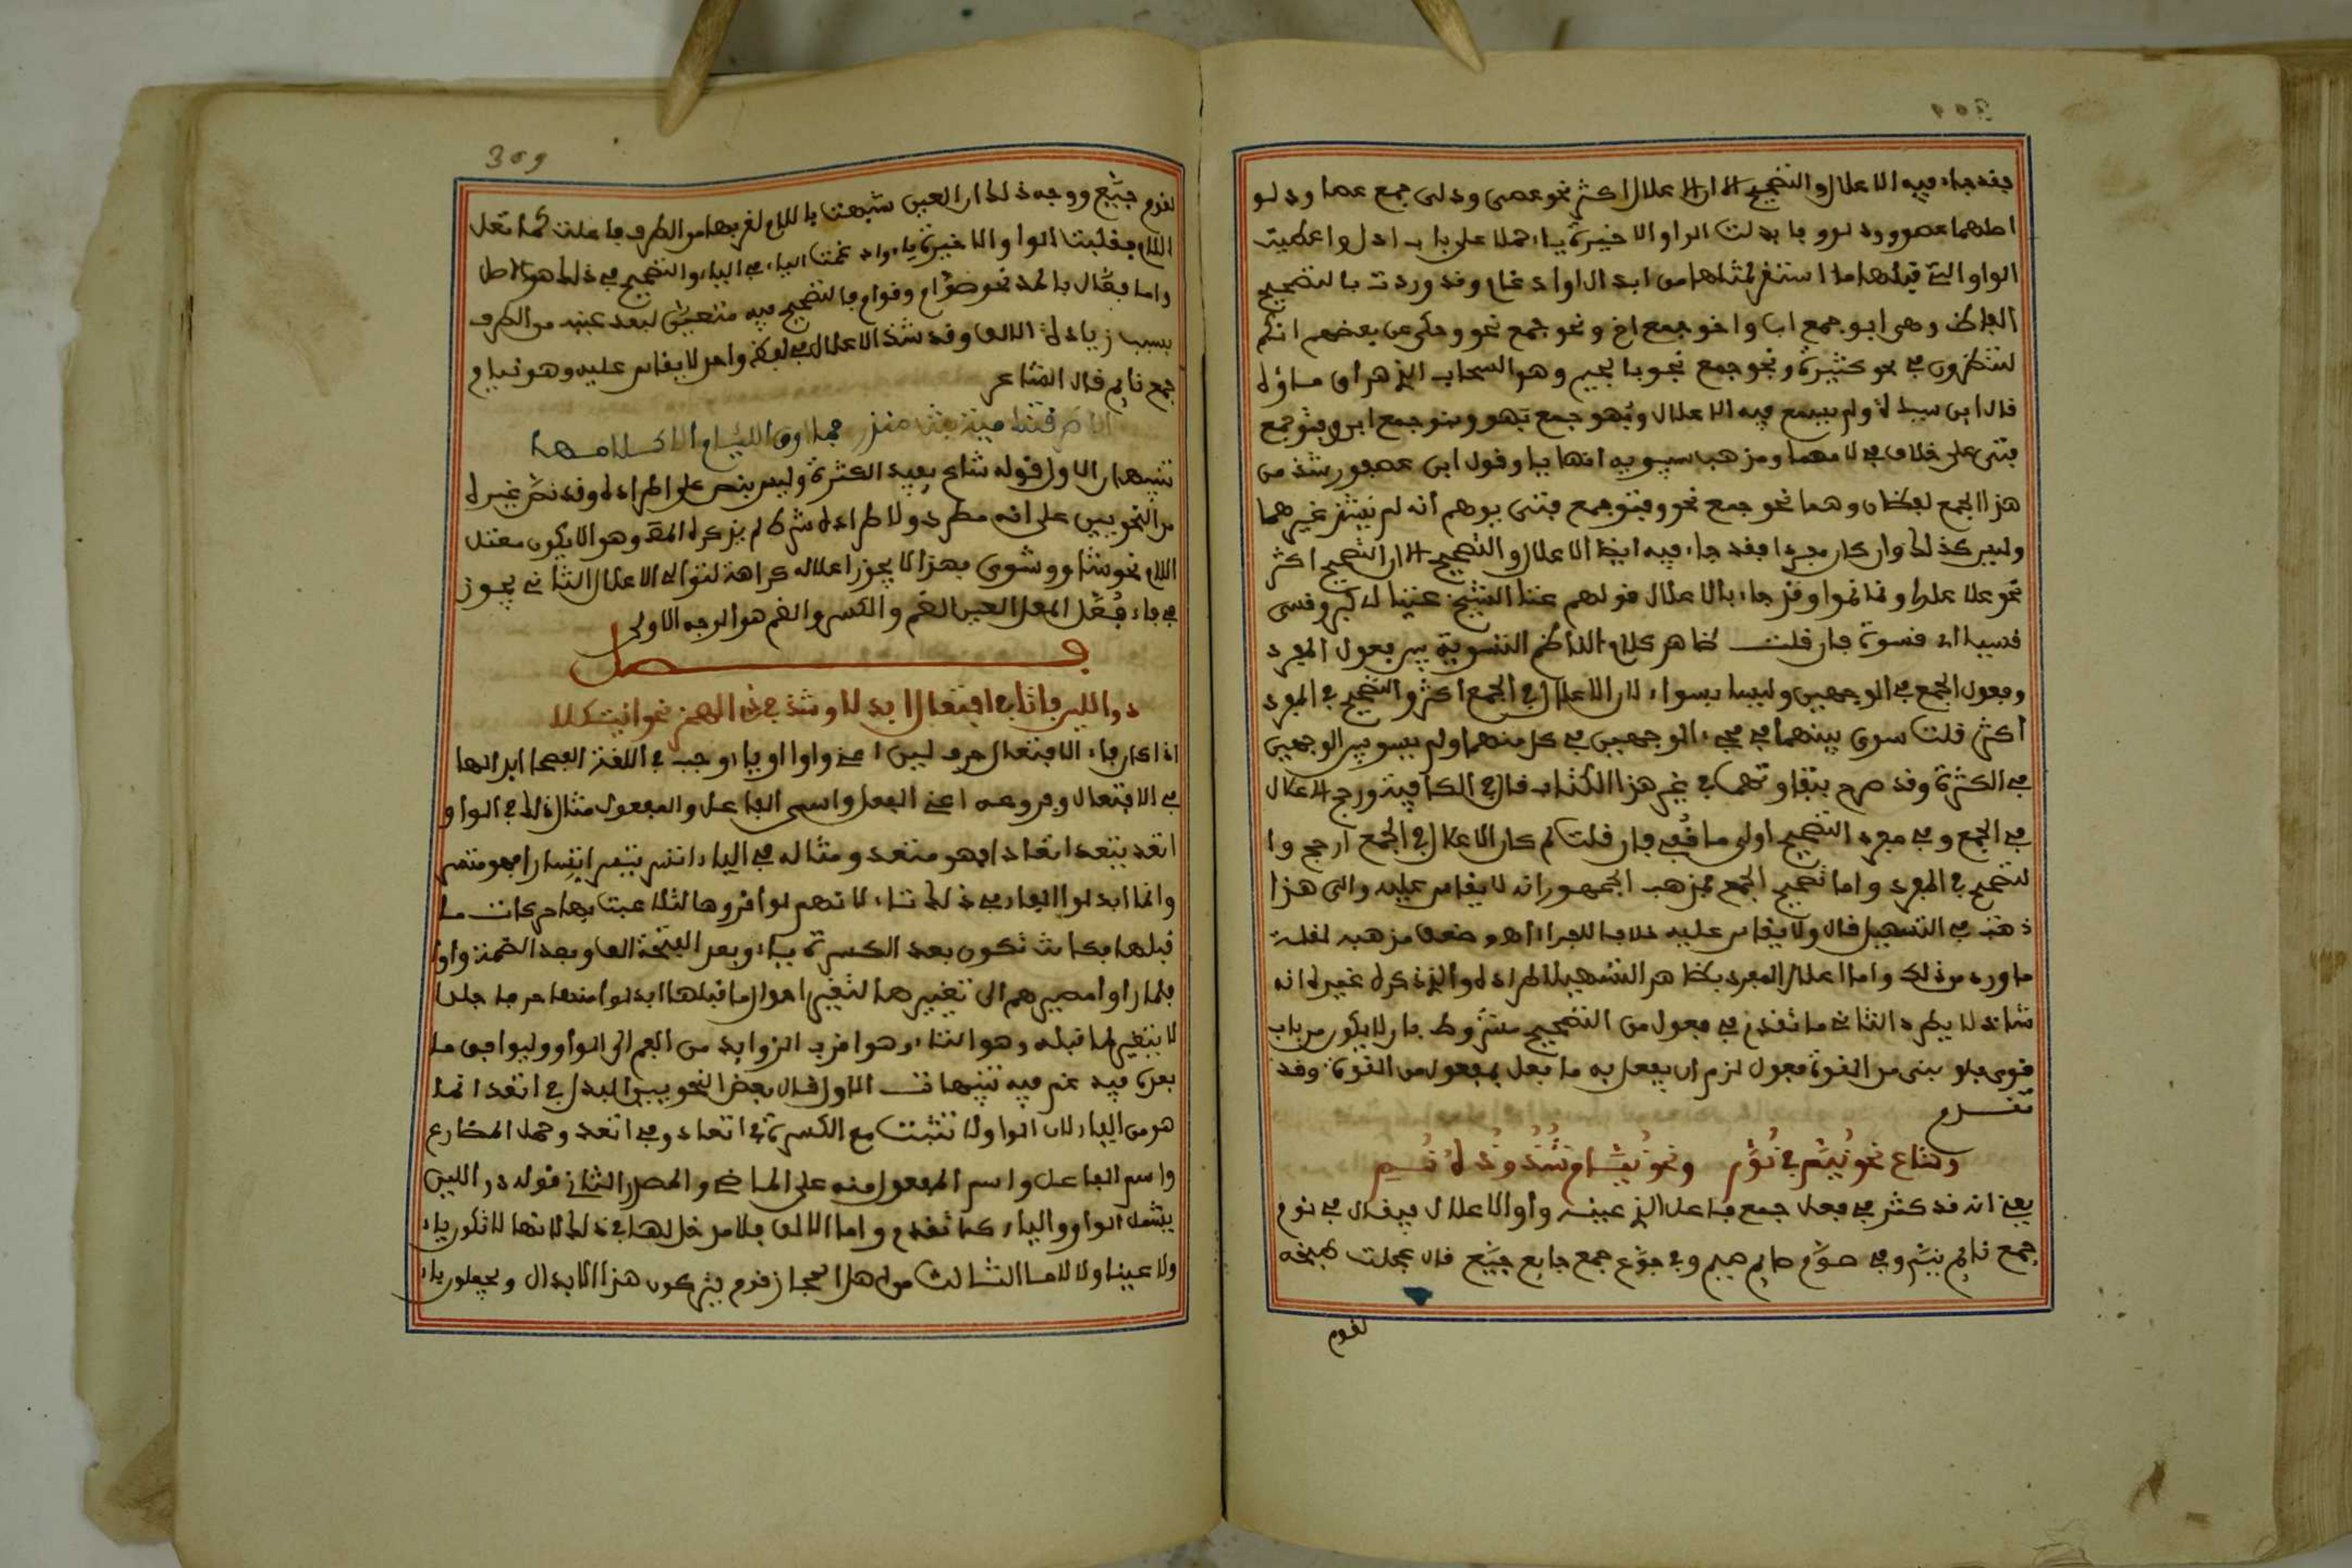 فقد جاء فيه الاعلال والتصحيح الا ان الاعلال اكثر نحو عصى ودلى جمع عصا ودلو
اصلهما عصوو ودلوو فابدلت الواو الاخيرة ياء حملا على باب ادل واعطيت
الواو التي قبلها ما استقر لمثلها من ابدال اوادغام وقد وردت بالتصحيح
الفاظ وهى ابو جمع اب واخو جمع اخ ونحو جمع نحو وحكى عن بعضهم انكم
لتنظرون في نحو كثيرة ونجو جمع نجو بالجيم وهو السحاب الذي هراق ماؤه
قال ابن سيدة ولم يسمع فيه الاعلال وبهو جمع بهو وبنو جمع ابن وفتو جمع
فتى على خلاف في لامهما ومذهب سيبويه انها ياء وقول ابن عصفور شذ من
هذا الجمع لفظان وهما نحو جمع نحو وفتو جمع فتى يوهم انه لم يشذ غيرهما
وليس كذلك وان كان مفردا فقد جاء فيه ايضا الاعلال والتصحيح الا ان التصحيح اكثر
نحو علا علوا ونما نموا وقد جاء بالاعلال قولهم عتا الشيخ عتيا اي كبر وقسى
قسيا اي قسوة فان قلت ظاهر كلام الناظم التسوية بين فعول المفرد
وفعول الجمع في الوجهين وليسا بسواء لان الاعلال في الجمع اكثر والتصحيح في المفرد
اكثر قلت سوى بينهما في مجيء الوجهين في كل منهما ولم يسو بين الوجهين
في الكثرة وقد صرح بتفاوتهما في غير هذا الكتاب قال في الكافية ورجح الاعلال
في الجمع وفي مفرد التصحيح اولى ما قفي فان قلت لم كان الاعلال في الجمع ارجح وا
لتصحيح في المفرد واما تصحيح الجمع فمذهب الجمهور انه لا يقاس عليه والى هذا
ذهب في التسهيل قال ولا يقاس عليه خلافا للفراء اهـ وضعف مذهبه لقلة
ما ورد من ذلك واما اعلال المفرد فظاهر التسهيل اطراده والذي ذكره غيره انه
شاذ لا يطرد الثاني ما تقدم في فعول من التصحيح مشروط بان لا يكون من باب
قوى فلو بنى من القوة فعول لزم ان يفعل به ما فعل بمفعول من القوة وقد
تقدم
وشاع نحو نيم في نوم ونحو نيام شذوذه نمي
يعني انه قد كثر في فعل جمع فاعل الذي عينه واو الاعلال فيقال في نوم
جمع نائم نيم وفي صوم صايم صيم وفي جوع جمع جايع جيع قال عجلت طبخه
لقوم
309
لقوم جيع ووجه ذلك ان العين شبهت باللام لقربها من الطرف فاعلت كما تعل
اللام فقلبت الواو الاخيرة ياء وادغمت الياء في الياء والتصحيح في ذلك هو الاصل
واما فعال بالمد نحو صوام وقوام فالتصحيح فيه متعين لبعد عينه من الطرف
بسبب زيادة الالف وقد شذ الاعلال في لفظ واحد لا يقاس عليه وهو نيام
جمع نايم قال الشاعر
الا طرقتنا مية بنت منذر فما ارق النيام الا كلامها
تنبيهان الاول قوله شاع يفيد الكثرة وليس بنص على اطراده وقد نص غيره
من النحويين على انه مطرد ولاطراده شرط لم يذكره المص وهو الا يكون معتل
اللام نحو شاو وشوى فهذا لا يجوز اعلاله كراهة لتوالي الاعلال الثاني يجوز
في فاء فعل المعل العين الضم والكسر والضم هو الوجه الاولى
فصل
ذو اللين فاتا في افتعال ابدلا وشذ في ذي الهمز نحو ائتكلا
اذا كان فاء الافتعال حرف لين اعني واوا او ياء وجب في اللغة الفصحا ابدالها
في الافتعال وفروعه اعني الفعل واسمي الفاعل والمفعول مثال ذلك في الواو
اتعد يتعد اتعادا فهو متعد ومثاله في الياء اتسر يتسر اتسارا فهو متسر
وانما ابدلوا الفاء في ذلك تاء لانهم لو اقروها لتلاعبت بها حركات ما
قبلها فكانت تكون بعد الكسرة ياء وبعد الفتحة الفا وبعد الضمة واوا
فلما راوا مصيرهم الى تغييرها لتغير احوال ما قبلها ابدلوا منها حرفا جلدا
لا يتغير لما قبله وهو التاء وهو اقرب الزوايد من الفم الى الواو وليوافق ما
بعده فيدغم فيه تنبيهات الاول قال بعض النحويين البدل في اتعد انما
هو من الياء لان الواو لا تثبت مع الكسرة في اتعاد وفي اتعد وحمل المضارع
واسم الفاعل واسم المفعول منه على الماضي والمصدر الثاني قوله ذو اللين
يشمل الواو والياء كما تقدم واما الالف فلا مدخل لها في ذلك لانها لا تكون فاء
ولا عينا ولا لاما الثالث من اهل الحجاز قوم يتركون هذا الابدال ويجعلون فاء